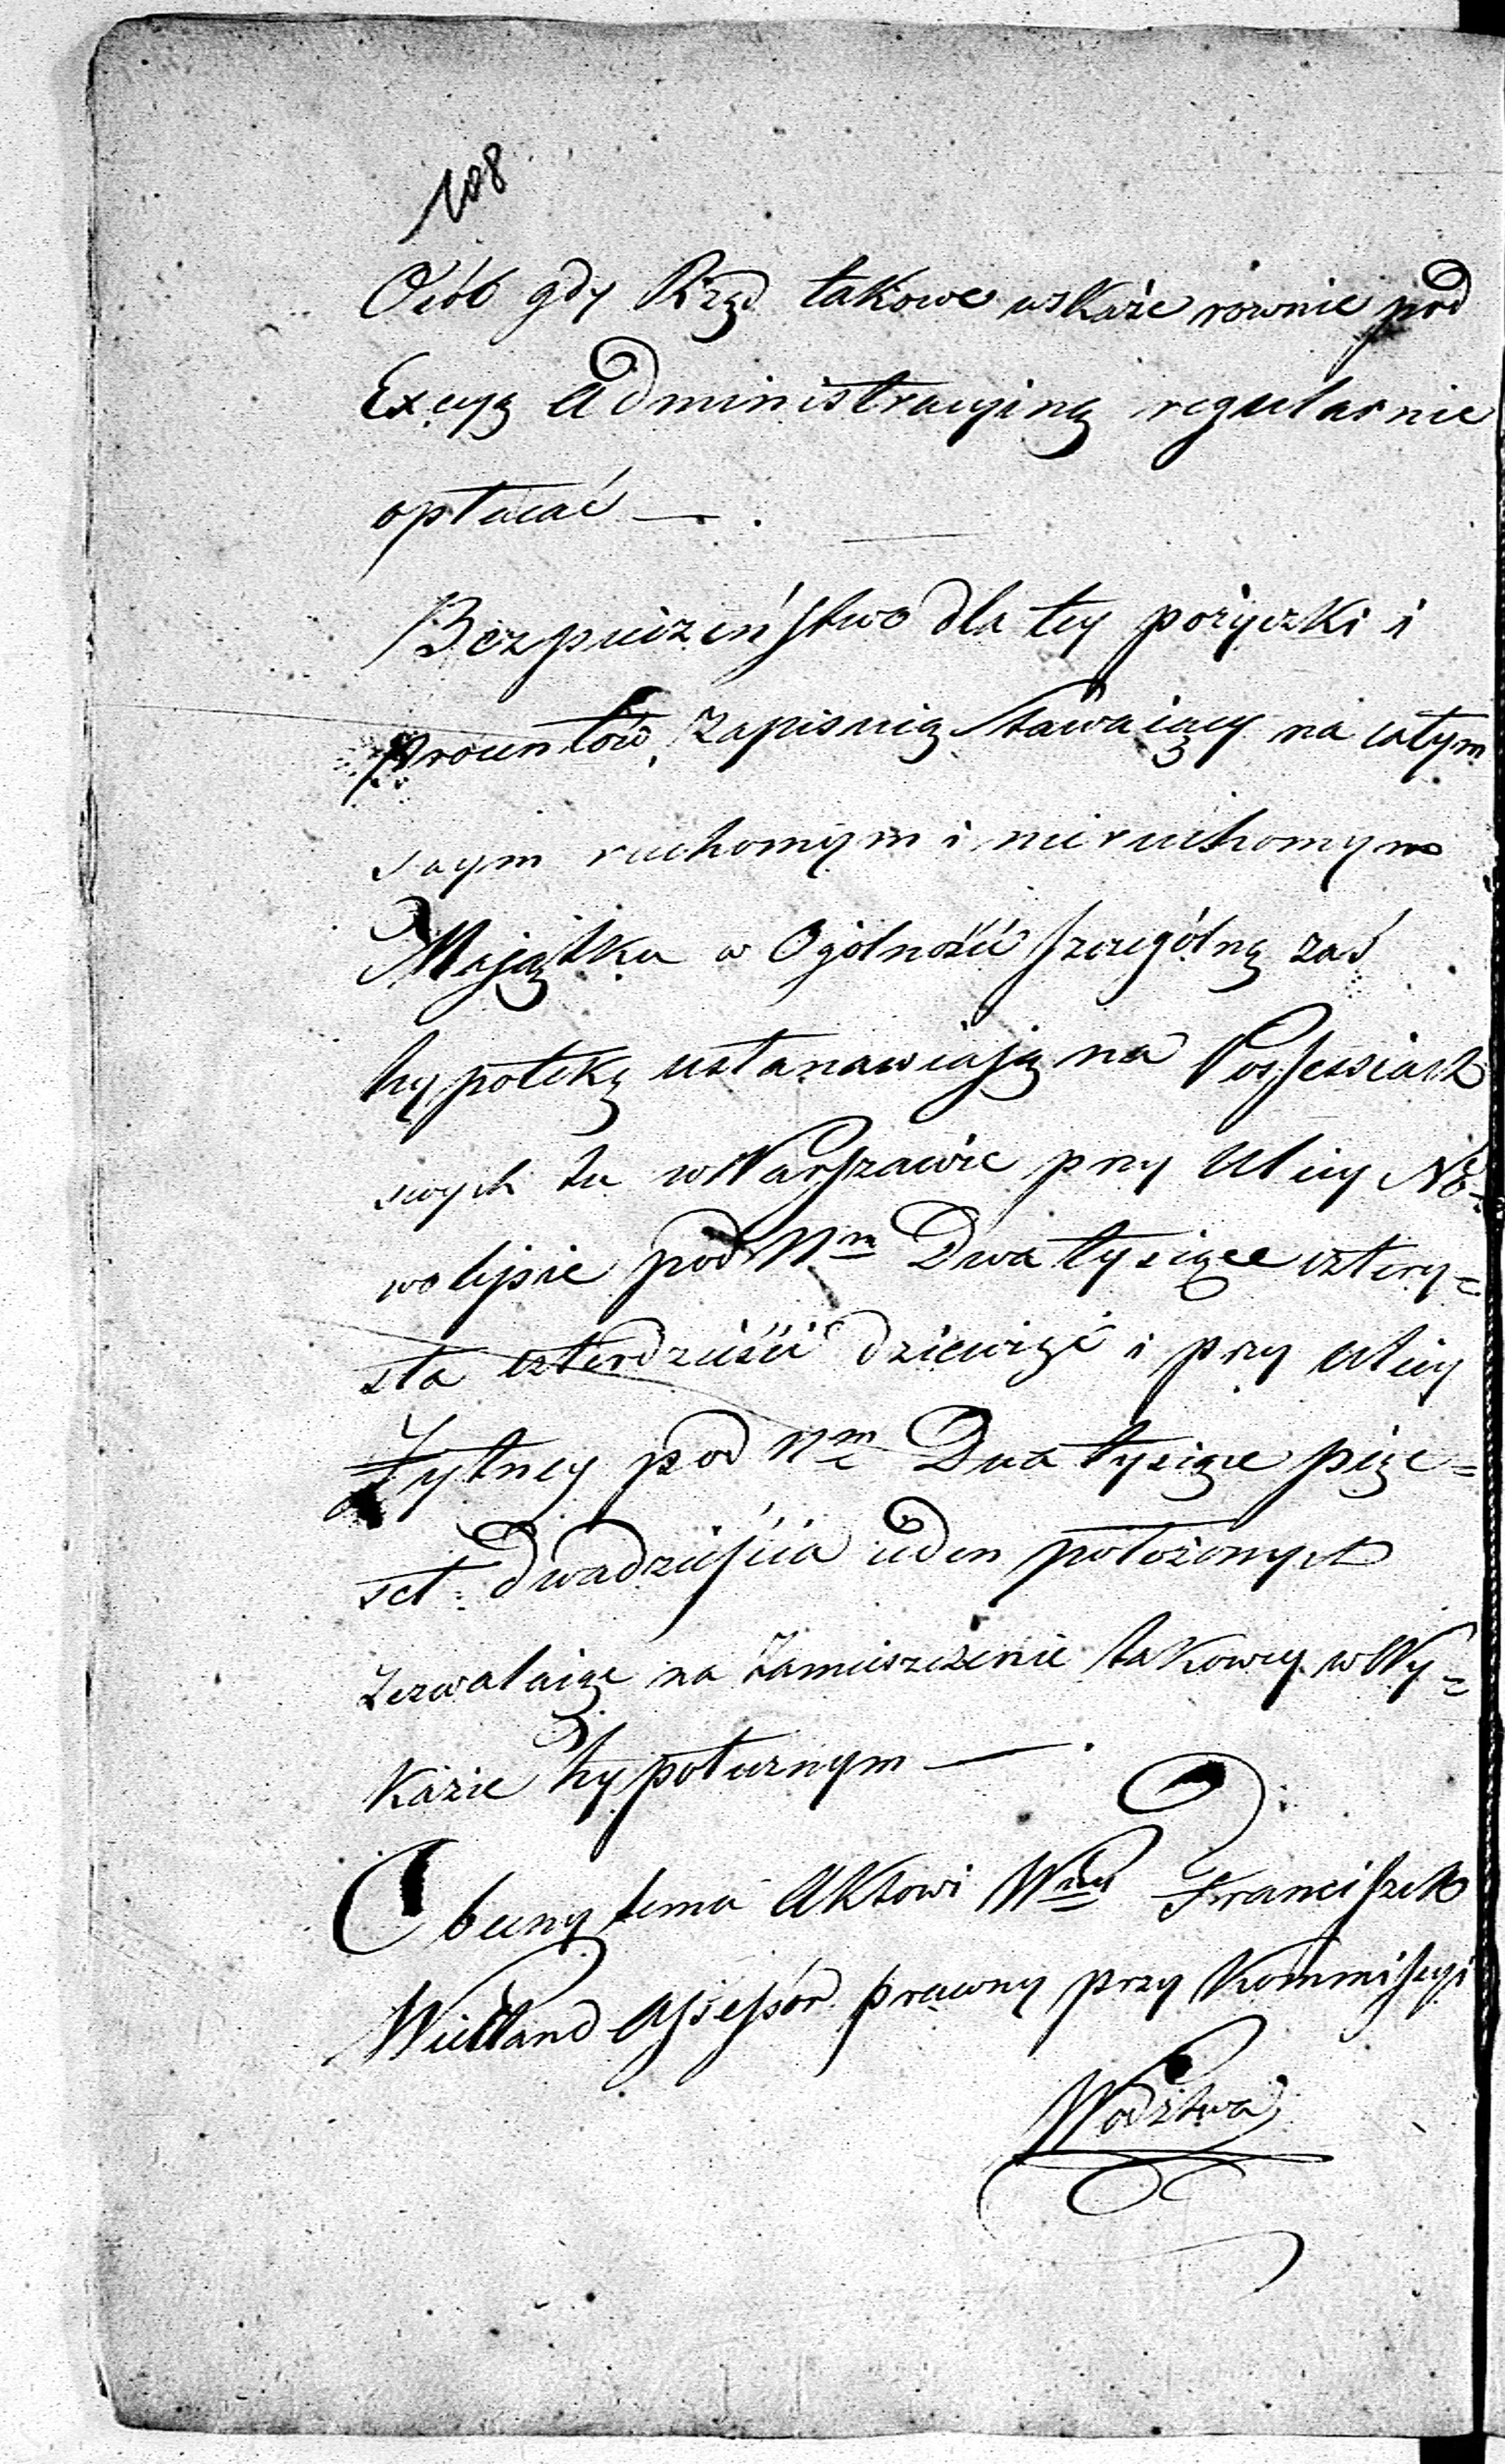 108
Osób gdy Rząd takowe wskaże rownie pod
Execyą Administracyiną regularnie
opłacać —.
Bezpieczeństwo dla tey pożyczki i
procentów, zapisuią stawaiący na całym
swym ruchomym i nieruchomym
Majątku w Ogólności szczególną zaś
hypotekę ustanawiają na Possessiach
swych tu w Warszawie przy Ulicy No=
wolipie pod Nm Dwa tysiące cztery=
sta czterdzieści dziewięć i przy ulicy
Żytney pod Nm Dwa tysiące pięć=
set dwadzieścia ieden położonych
zezwalaiąc na zamieszczenie takowey w Wy=
kazie hypotecznym —.
Obecny temu Aktowi Wny Franciszek
Assessor prawny przy Kommissyi
Wodztwa